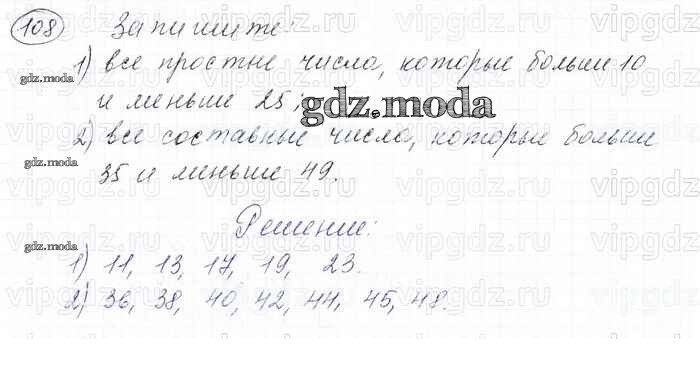 108 Запишите:
1) все простые числа, которые больше 10
gdz.moda
и меньше 25;
gdz.moda
2) все составные числа, которые больше
gdz.moda
35 и меньше 49.
Решение:
gdz.moda
1) 11, 13, 17, 19, 23.
2) 36, 38, 40, 42, 44, 45, 48.
vipgdz.ru